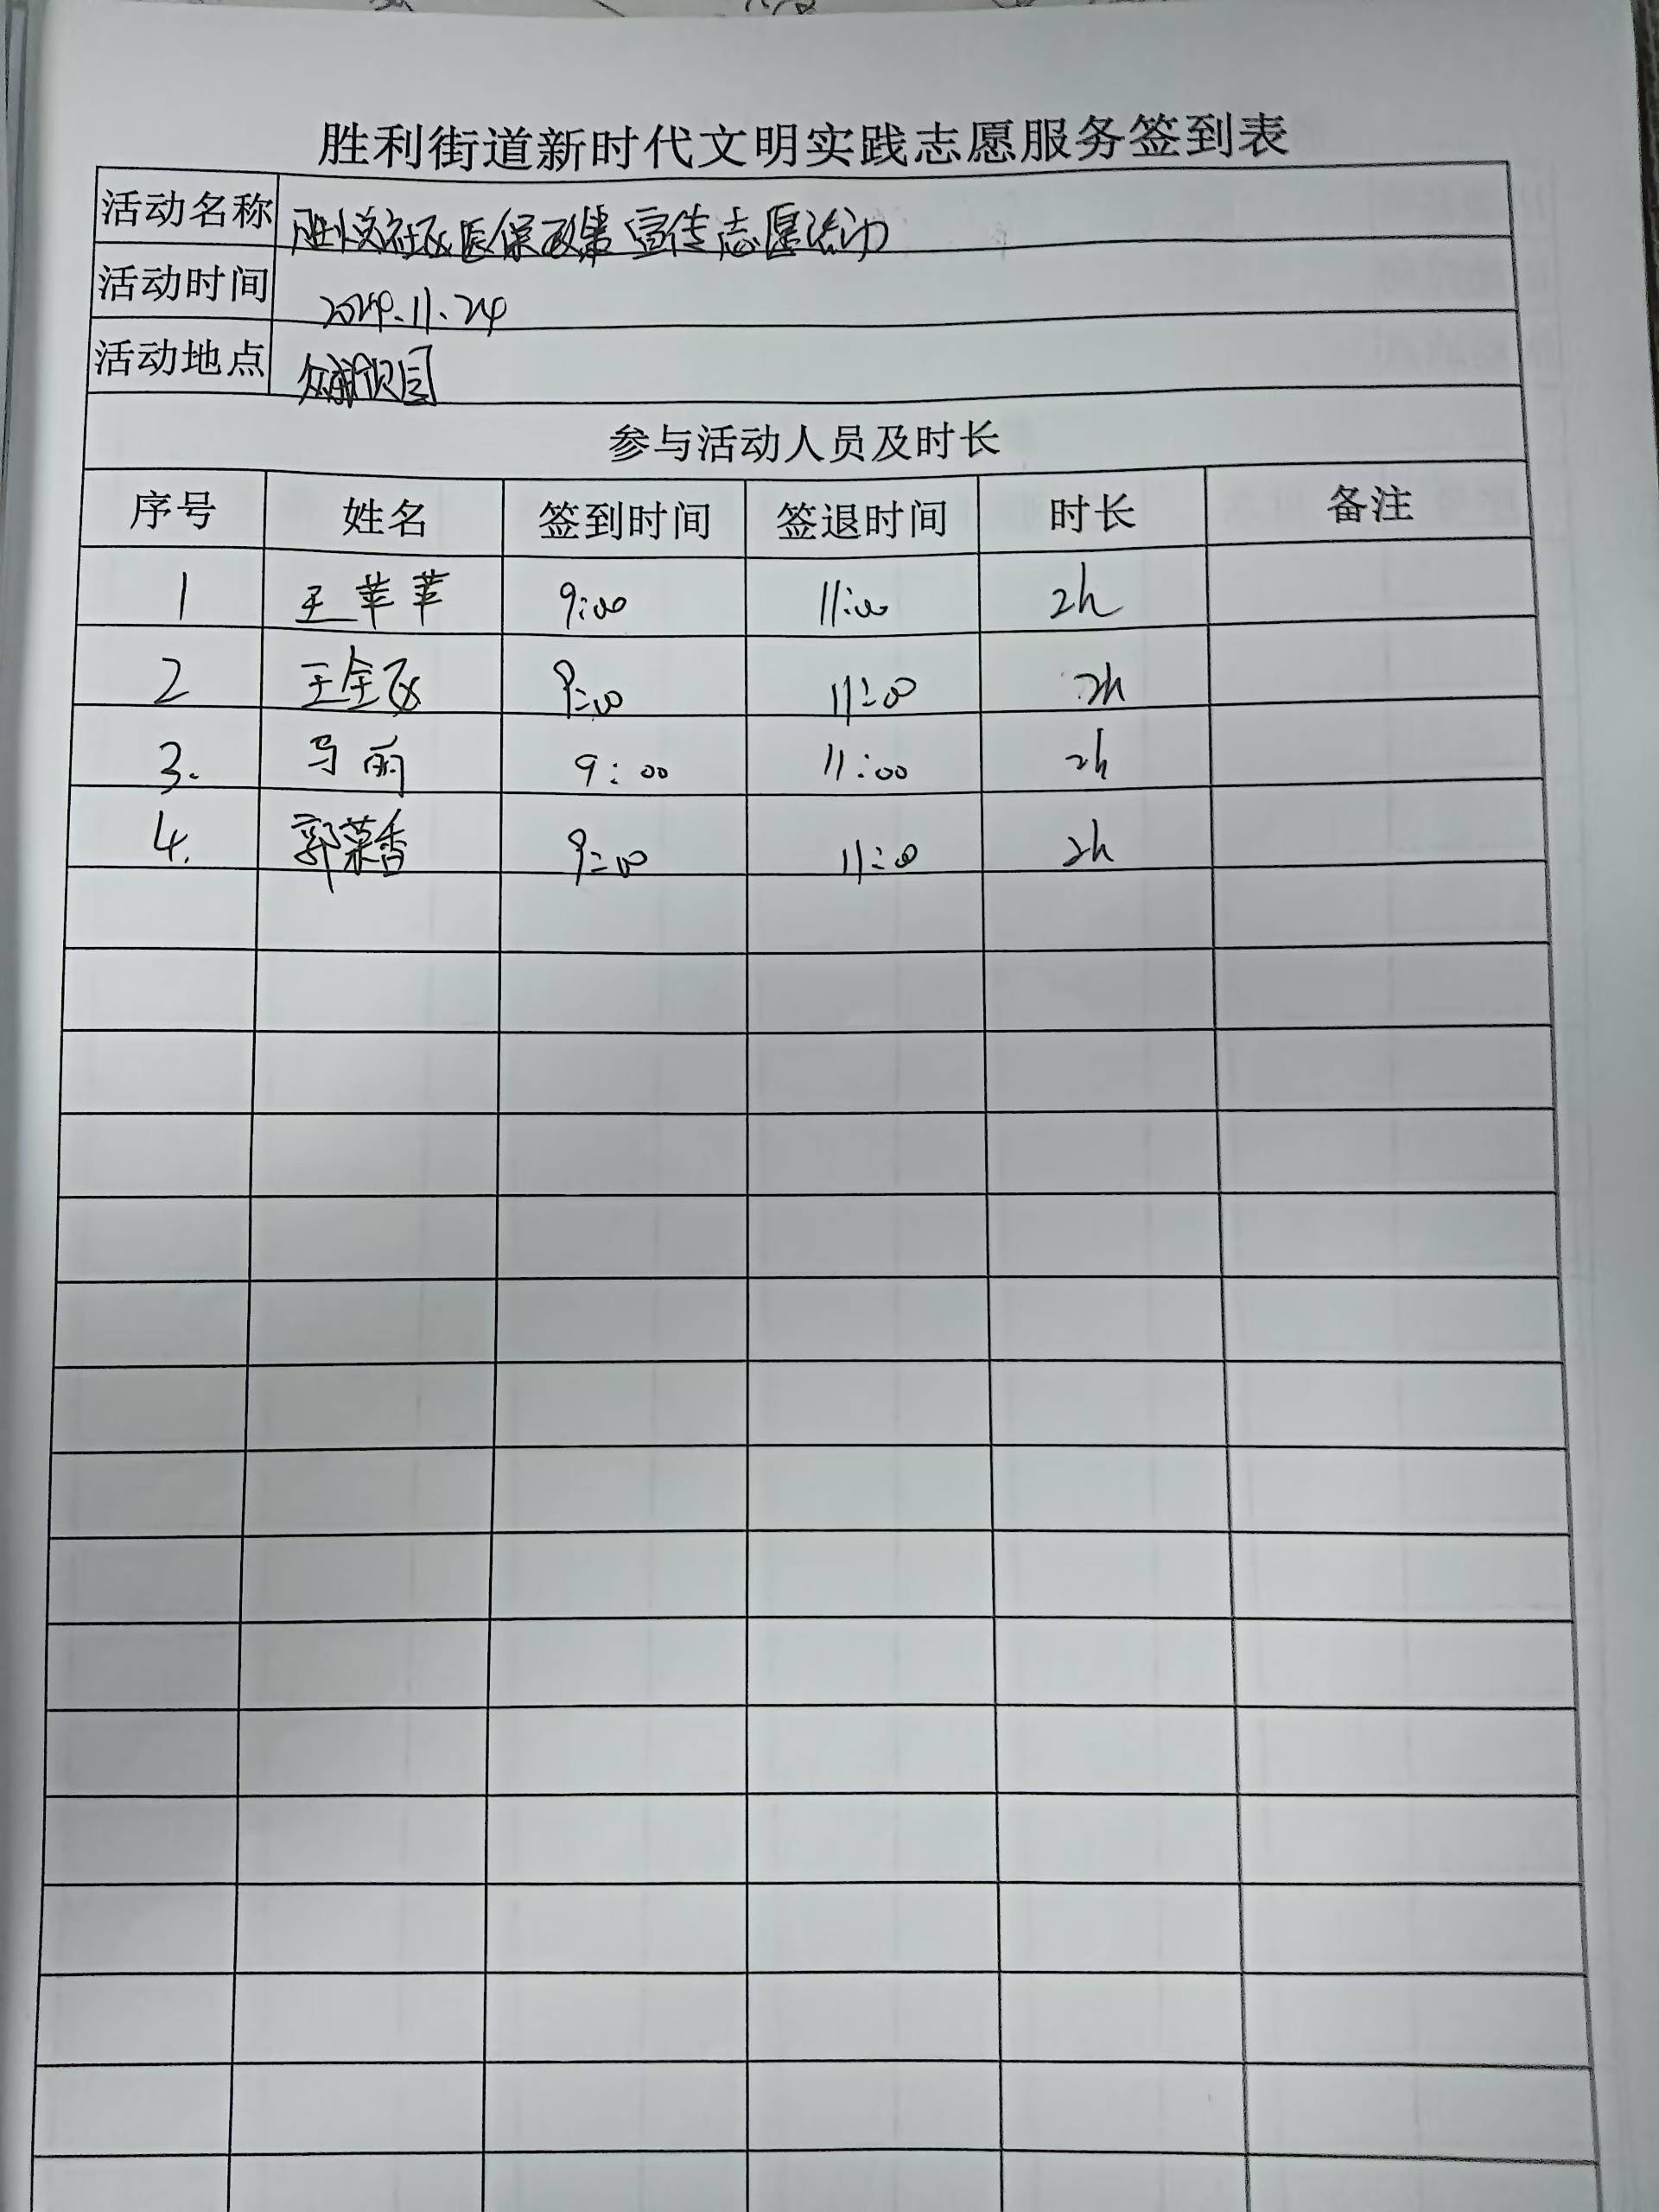 胜利街道新时代文明实践志愿服务签到表
活动名称 社区医保政策宣传志愿活动
活动时间 2024.11.24
活动地点
参与活动人员及时长
序号 姓名 签到时间 签退时间 时长 备注
1 王苹苹 9:00 11:00 2h
2 王全 9:00 11:00 2h
3. 马丽 9:00 11:00 2h
4. 郭荣香 9:00 11:00 2h